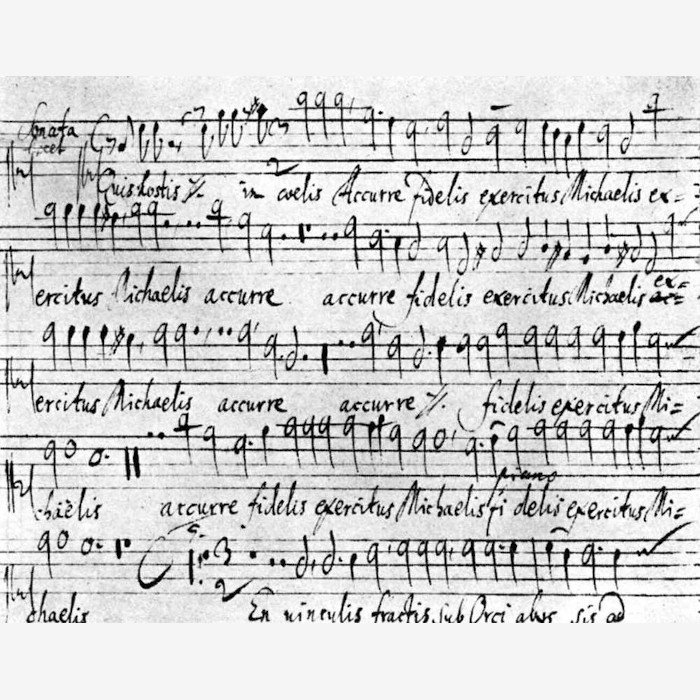 Sonata
tacet
Quis hostis in coelis Accurre fidelis exercitus Michaelis ex=
ercitus Michaelis accurre accurre fidelis exercitus Michaelis ex=
ercitus Michaelis accurre accurre fidelis exercitus Mi=
piano
chaëlis accurre fidelis exercitus Michaelis fi delis exercitus Mi=
chaelis En vinculis fractis, sub Orci sis ad